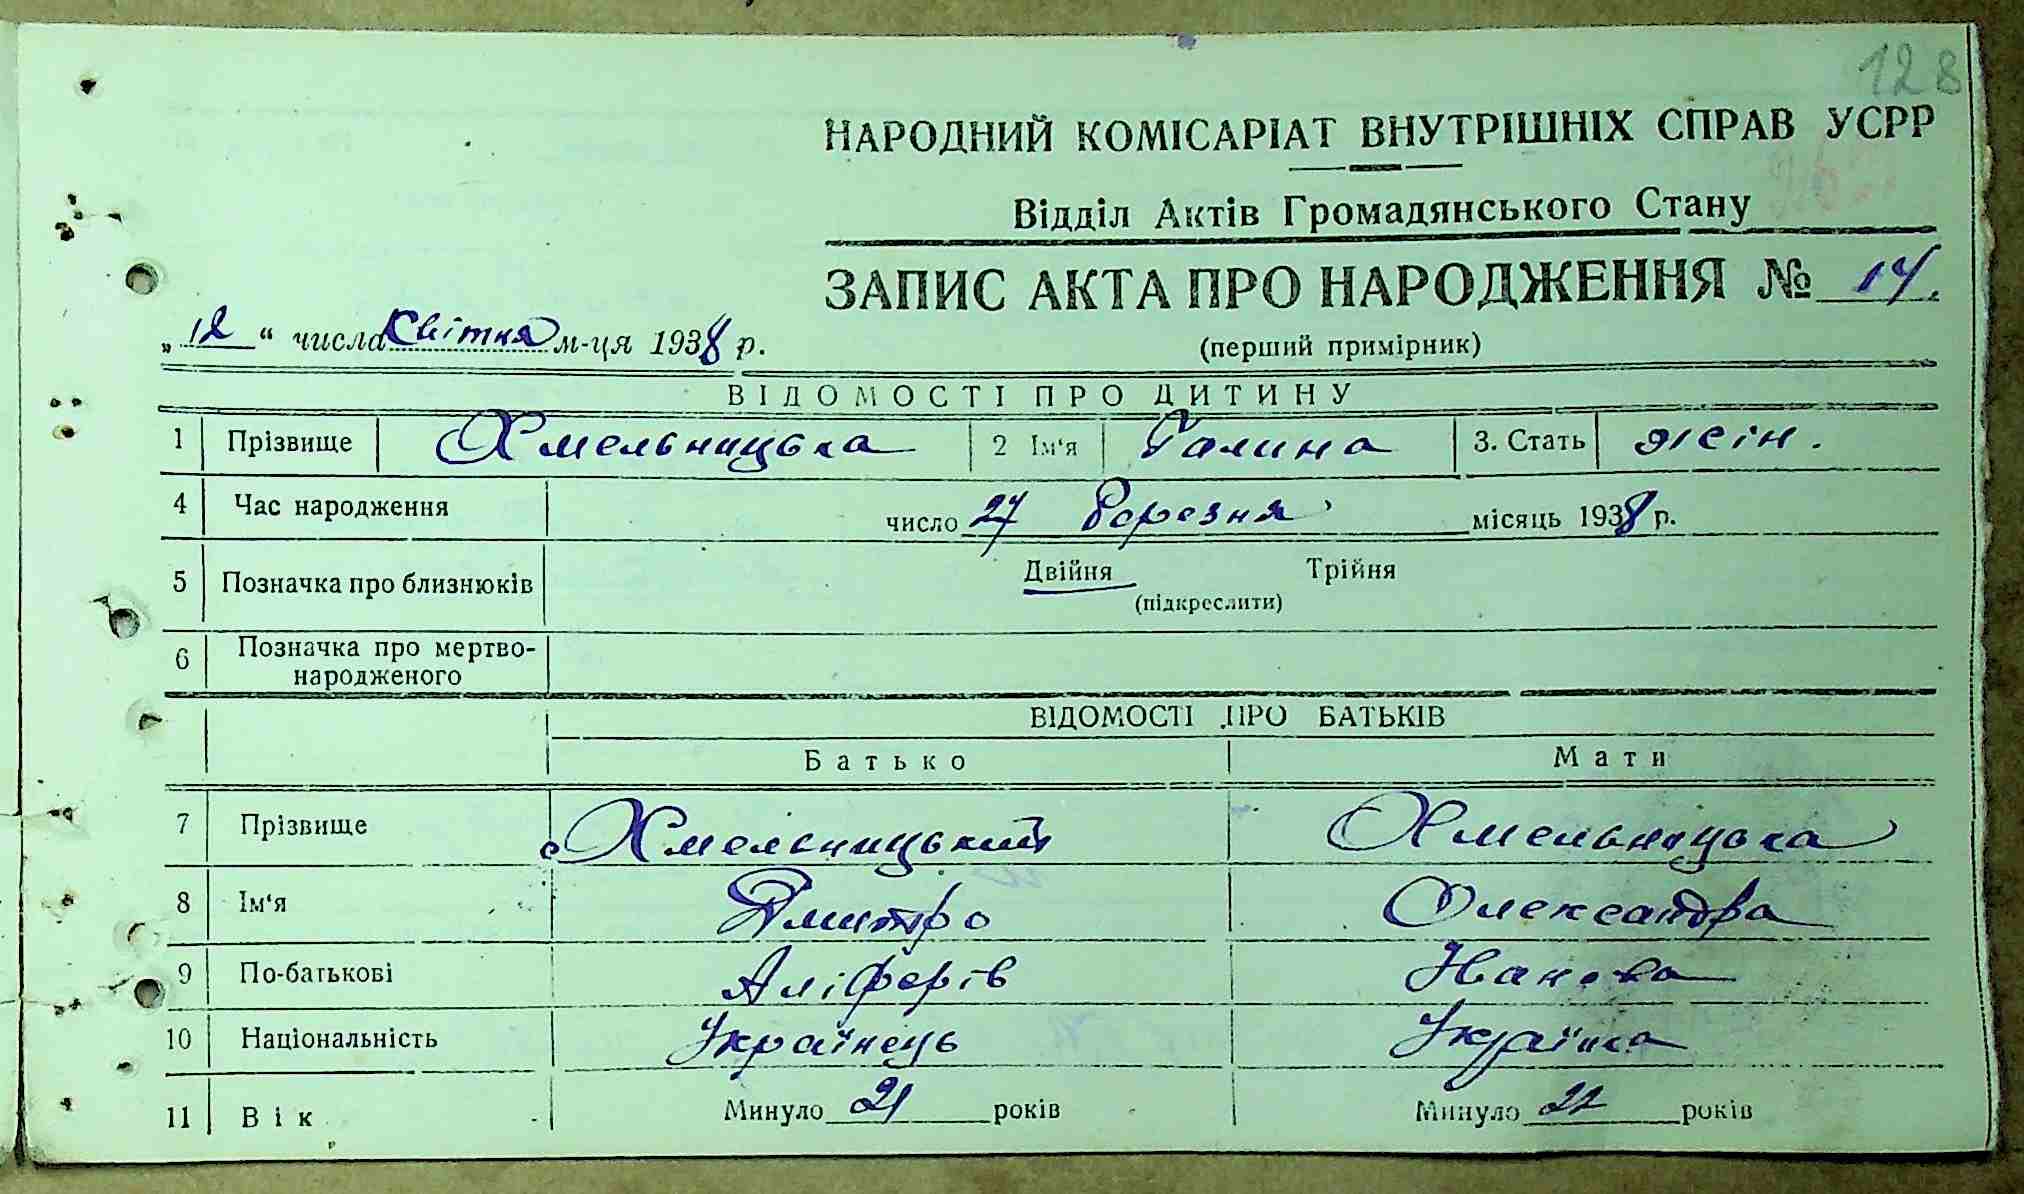 128
НАРОДНИЙ КОМІСАРІАТ ВНУТРІШНІХ СПРАВ УСРР
Відділ Актів Громадянського Стану
ЗАПИС АКТА ПРО НАРОДЖЕННЯ № 14.
„12“ числа Квітня м-ця 1938 р.
(перший примірник)
ВІДОМОСТІ ПРО ДИТИНУ
1 Прізвище Хмельницька 2 Ім‘я Галина 3. Стать жін.
4 Час народження число 27 Березня місяць 1938 р.
5 Позначка про близнюків Двійня Трійня
(підкреслити)
6 Позначка про мертво-
народженого
ВІДОМОСТІ ПРО БАТЬКІВ
Батько Мати
7 Прізвище Хмельницький Хмельницька
8 Ім‘я Дмитро Олександра
9 По-батькові Аліферів Іванова
10 Національність Українець Українка
11 Вік Минуло 21 років Минуло 22 років